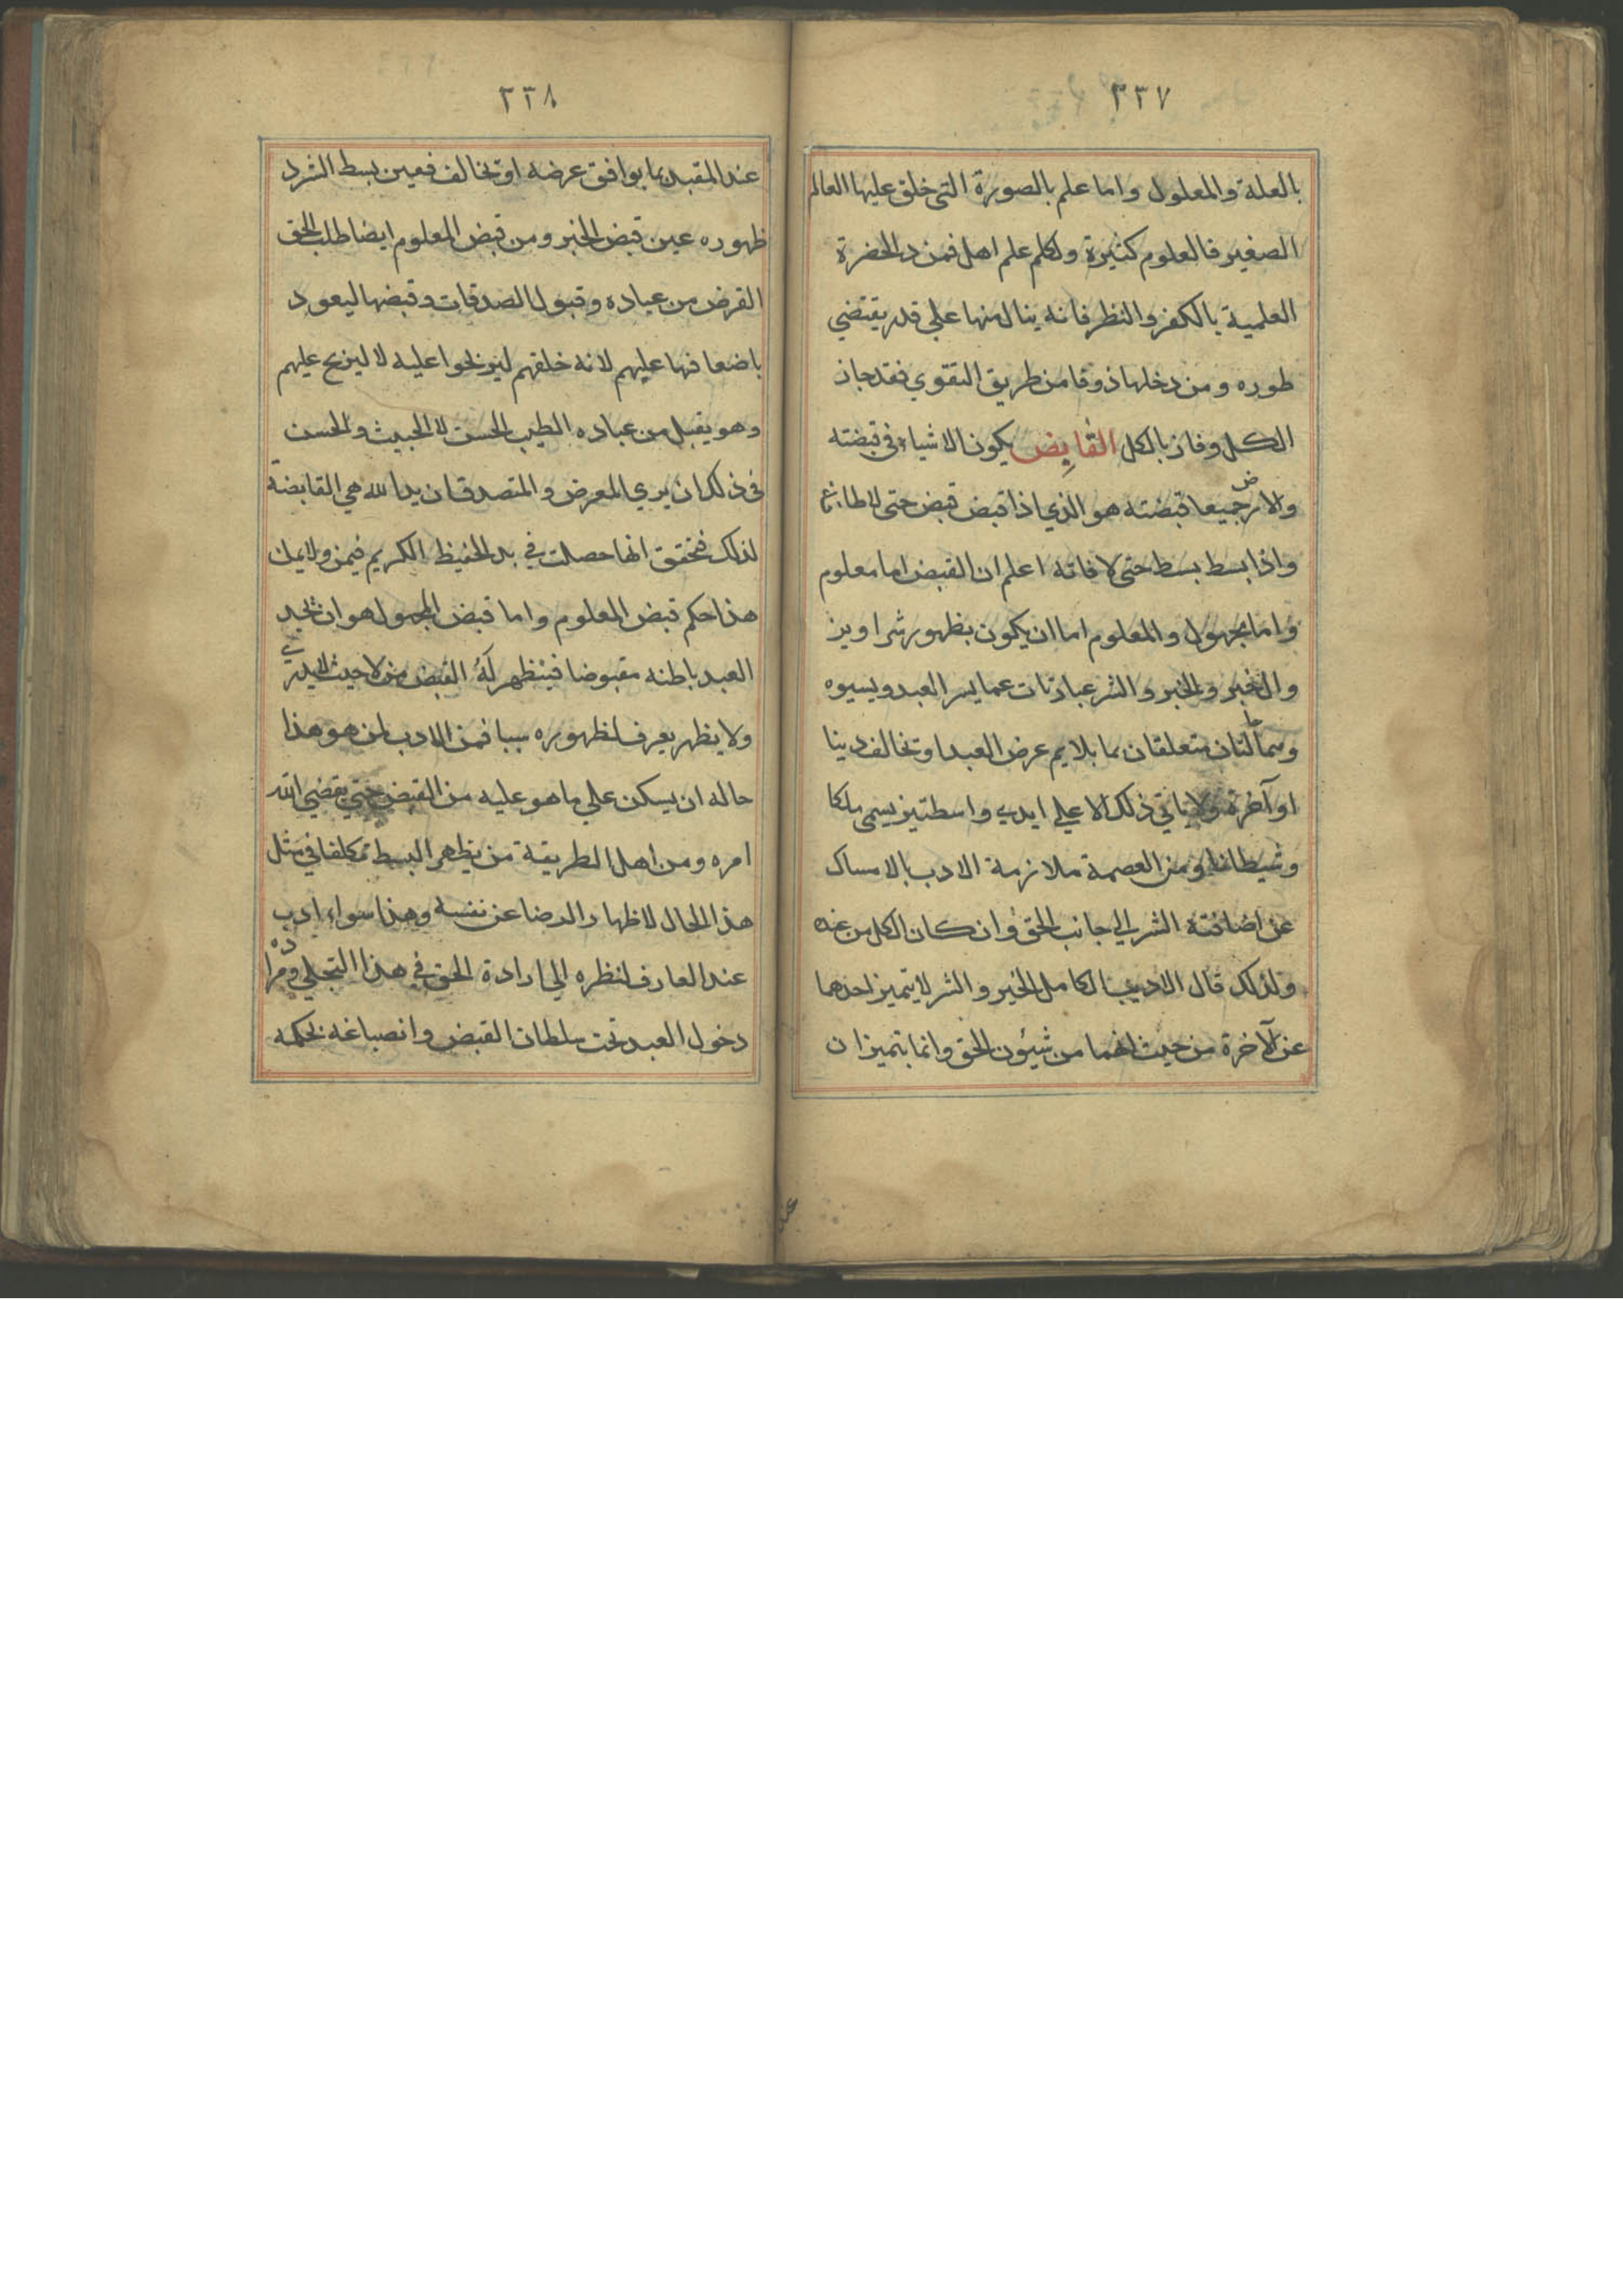 ٣٣٧
بالعلة والمعلول واما علم بالصورة التى خلق عليها العالم
الصغير فالعلوم كثيرة ولكلم علم اهل فمن د الحضرة
العلمية بالكفر والنظر فانه ينال منها علي قدر يقتضي
طوره ومن دخلها ذوقا من طريق التقوي فقد حاز
الكل وفاز بالكل القابض يكون الاشياء فى قبضته
والارض جميعا قبضته هو الذي اذا قبض قبض حتى لا طاقة
واذا بسط بسط حتى لا فاقه اعلم ان القبض اما معلوم
واما مجهول والمعلوم اما ان يكون بظهور شر او
والخير والشر عبارتان عما يسر العبد ويسيوه
وهما متعلقان بما يلايم عرض العبد او تخالف دينا
او آخرة ولا ياتي ذلك الا علي ايدي واسطتين يسمى ملكا
وشيطانا ومن العصمة ملازمة الادب بالامساك
عن اضافته الشر الي جانب الحق وان كان الكل من عنده
ولذلك قال الاديب الكامل الخير والشر لا يتميز احدهما
عن الآخرة من حيث انهما من شيئون الحق وانما يتميزان
٣٣٨
عند المقبد بما يوافق عرضه او تخالف فعين بسط الشر د
ظهوره عين قبض الخير ومن قبض المعلوم ايضا طلب الحق
القرض من عباده وقبول الصدقات وقبضها ليعود
باضعافها عليهم لانه خلقهم ليربحوا عليه لا ليربح عليهم
وهو يقبل من عباده الطيب الحسن لا الخبيث والحسن
فى ذلك ان يري المعرض والمتصدق ان يد الله هي القابضة
لذلك فتحقق انها حصلت في يد الحفيظ الكريم فيمن ولا يمك
هذا حكم قبض المعلوم واما قبض المجهول هو ان تجد
العبد باطنه مقبوضا فينظهر له القبض من لا حيث لا يدري
ولا يظهر يعرف لظهوره سببا فمن الادب لمن هو هذا
حاله ان يسكن علي ما هو عليه من القبض حتي يقضي الله
امره ومن اهل الطريقة من يظهر البسط تمكلفا في مثل
هذا الحال لاظهار الرضا عن نفسه وهذا سواء ادب
عند العارف لنظره الي ارادة الحق في هذا التجلي ومراده
دخول العبد تحت سلطان القبض وانصباغه بحكمه